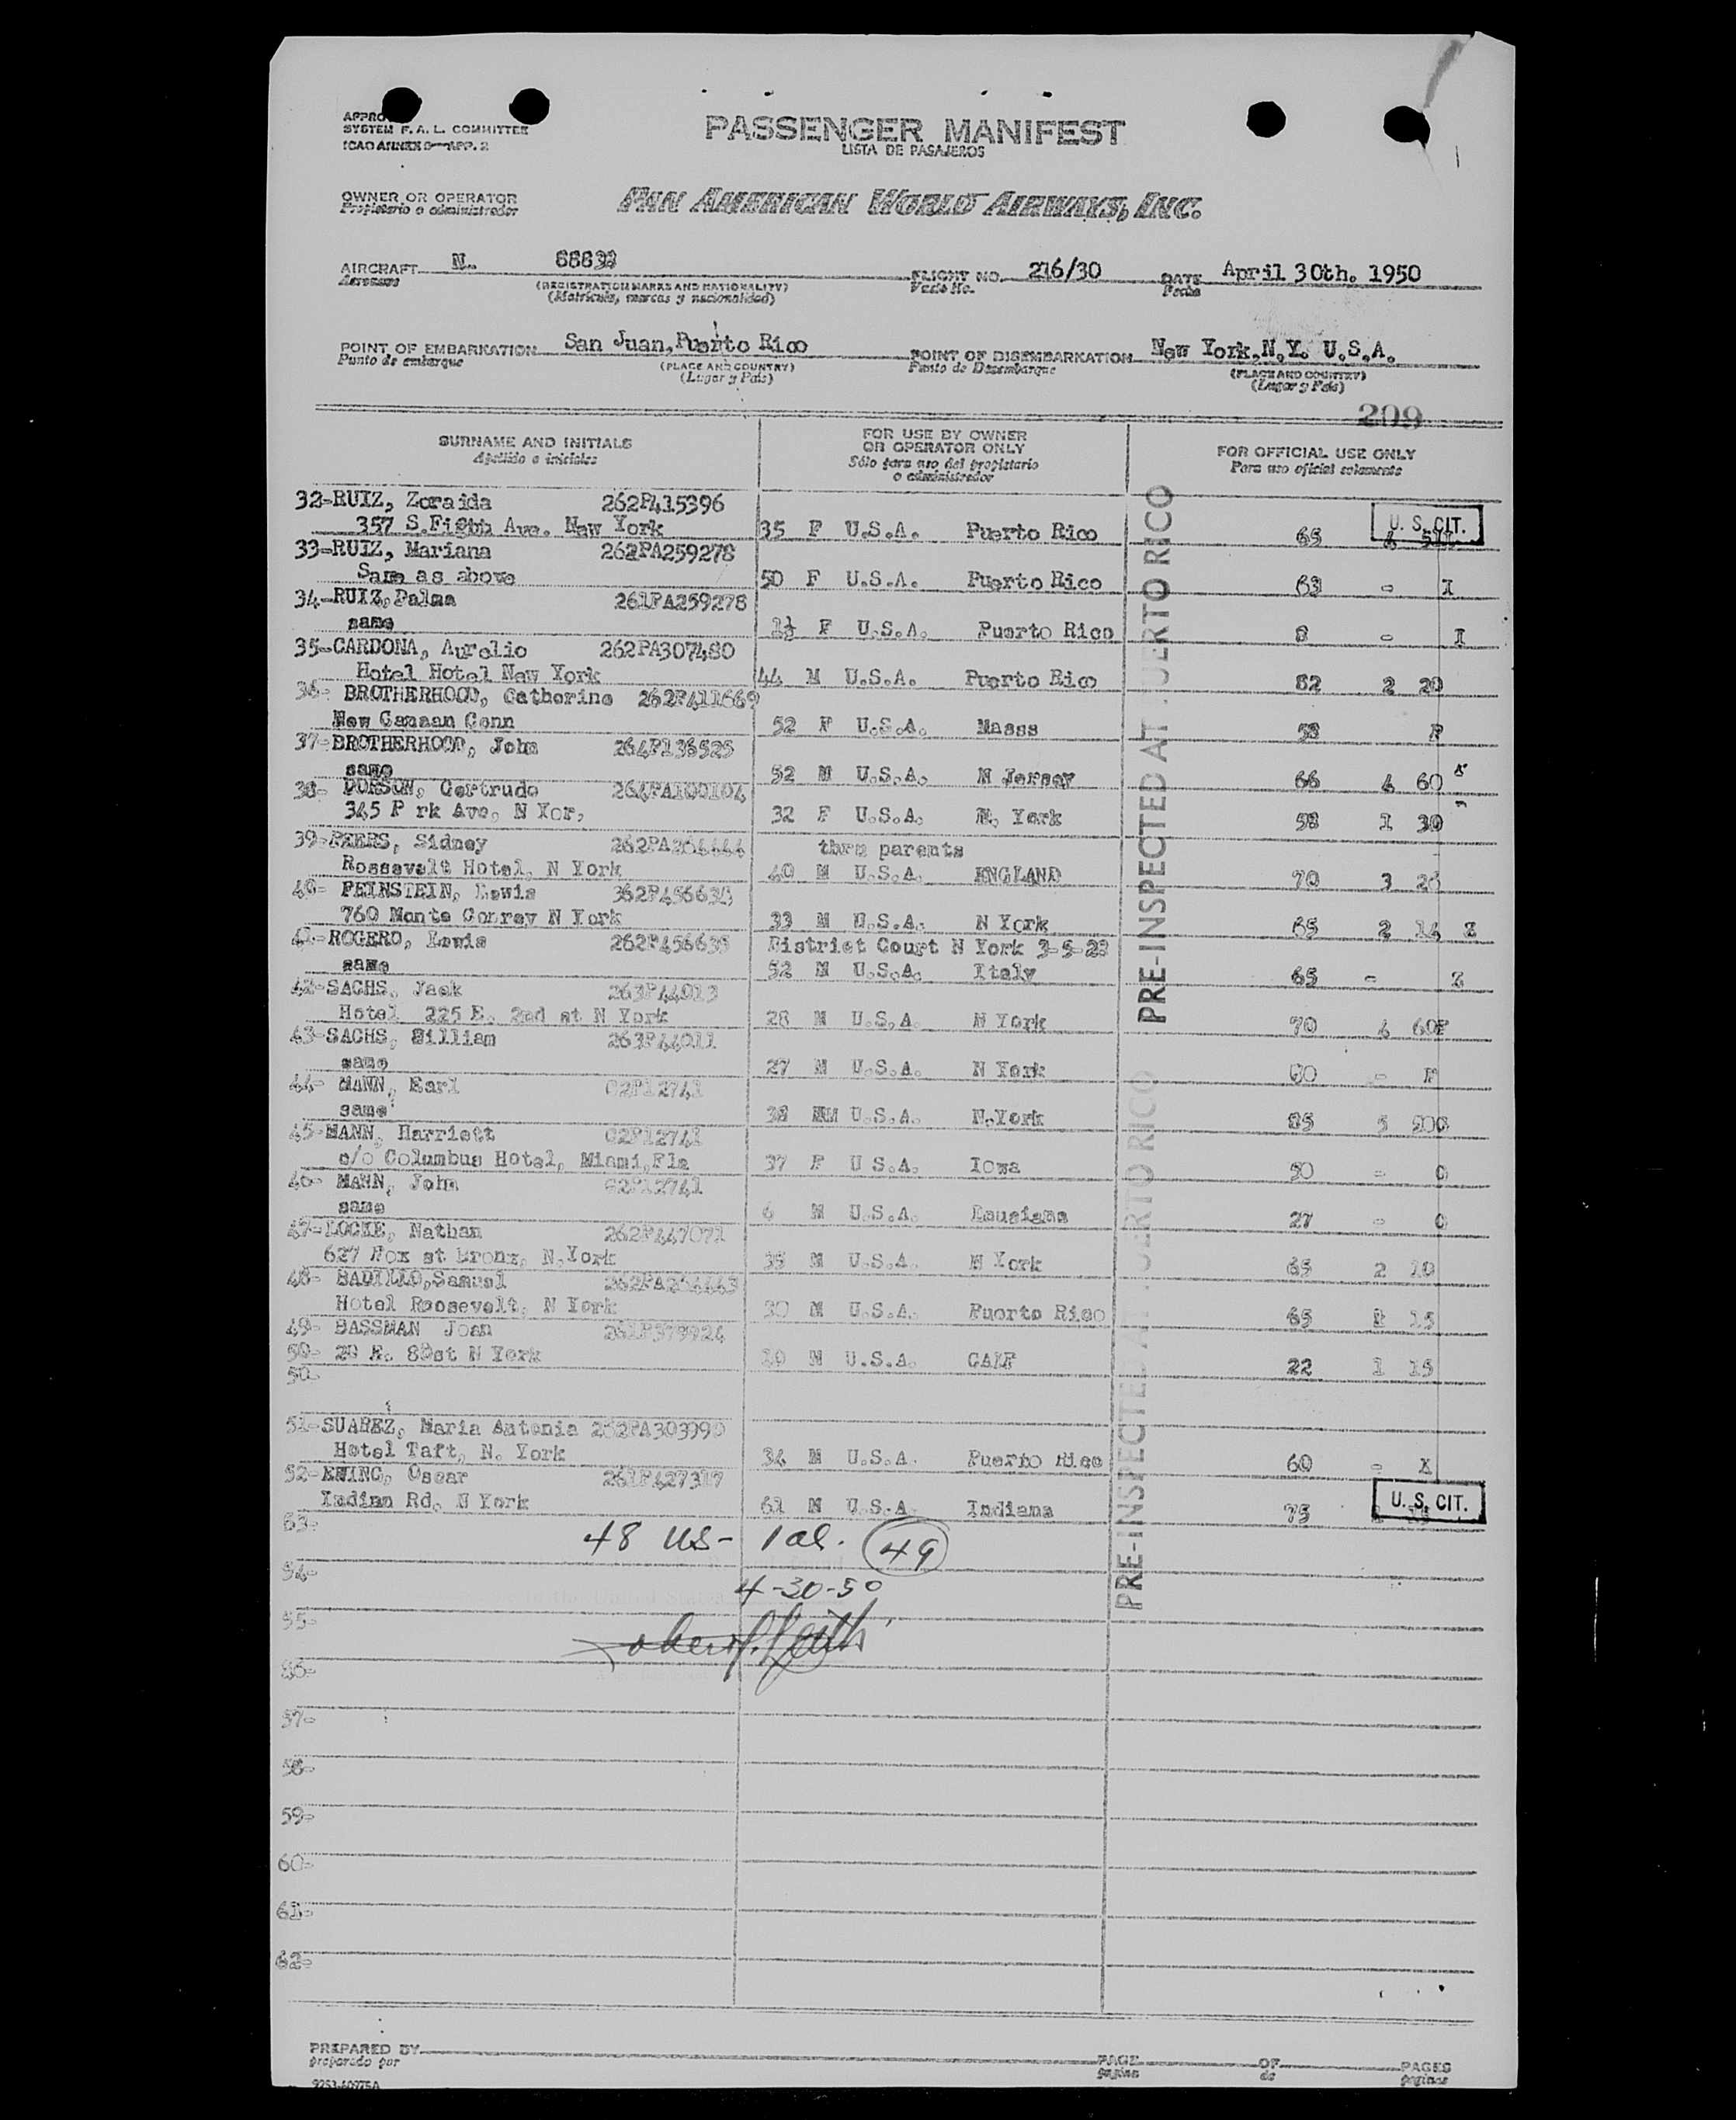 SYSTEM F. A. L. COMMITTEE
ICAO ANNEX 9—APP. 2
PASSENGER MANIFEST
LISTA DE PASAJEROS
OWNER OR OPERATOR
Propietario o administrador
PAN AMERICAN WORLD AIRWAYS, INC.
AIRCRAFT N. FLIGHT NO. 216/30 DATE April 30th. 1950
Aeronave (REGISTRATION MARKS AND NATIONALITY) Vuelo No. Fecha
(Matrícula, marcas y nacionalidad)
POINT OF EMBARKATION San Juan, Puerto Rico POINT OF DISEMBARKATION New York, N.Y. U.S.A.
Punto de embarque (PLACE AND COUNTRY) Punto de Desembarque (PLACE AND COUNTRY)
(Lugar y País) (Lugar y País)
209
SURNAME AND INITIALS FOR USE BY OWNER OR OPERATOR ONLY FOR OFFICIAL USE ONLY
Apellido e iniciales Sólo para uso del propietario o administrador Para uso oficial solamente
PRE-INSPECTED AT PUERTO RICO
32-RUIZ, Zoraida 262P415396
U. S. CIT.
357 S. Ave. New York 35 F U.S.A. Puerto Rico 65 4
33-RUIZ, Mariana 262PA259278
Same as above 50 F U.S.A. Puerto Rico 63 - I
34-RUIZ,Palma 261PA259278
same 1½ F U.S.A. Puerto Rico 8 - I
35-CARDONA, Aurelio 262PA307480
Hotel Hotel New York 44 M U.S.A. Puerto Rico 82 2 20
36- BROTHERHOOD, Catherine 262P411669
New Canaan Conn 52 F U.S.A. Masss 58 P
37-BROTHERHOOD, John 264P136525
same 52 M U.S.A. N Jersey 66 4 60
38- DORSON, Gertrude 264PA100104
345 P rk Ave, N Yor, 32 F U.S.A. N. York 58 1 30
39-PEERS, Sidney 262PA264444 thru parents
Rossevelt Hotel, N York 40 M U.S.A. ENGLAND 70 3
40- FEINSTEIN, Lewis
760 Monte N York 33 M U.S.A. N York 65 2 14 Z
41-ROGERO, Lewis 262P456635 District Court N York 3-5-23
same 52 M U.S.A. Italy 65 - Z
42-SACHS, Jack 263P44013
Hotel 225 E. 2nd st N York 28 M U.S.A. N York 70 4 60P
43-SACHS, William 263P44011
same 27 M U.S.A. N York - P
44- MANN, Earl 02P12741
same 38 U.S.A. N.York 85 5
45-MANN, Harriett 02P12741
c/o Columbus Hotel, Miami,Fla 37 F U S.A. Iowa 50 - 0
46- MANN, John 02P12741
same 6 M U.S.A. Lousiana 27 - 0
47-LOCKE, Nathan 262P447071
627 Fox st Bronx, N.York 35 M U.S.A. N York 65 2 10
48- BADILLO,Samuel 262PA264443
Hotel Roosevelt, N York 30 M U.S.A. Puerto Rico 65 15
49- BASSMAN Joan 261P379924
50- 20 E. st N York 10 M U.S.A. CALF 22 1 15
50-
PRE-INSPECTED AT PUERTO RICO
51-SUAREZ, Maria Antonia 262PA303990
Hotel Taft, N. York 34 M U.S.A. Puerto Rico 60 - X
52-EWING, Oscar 261P427317
Indian Rd, N York 61 M U.S.A. Indiana 75
U. S. CIT.
53-
48 US- 1 al. 49
54-
4-30-50
55-
56-
57-
58-
59-
60-
61-
62-
PREPARED BY PAGE OF PAGES
preparado por página de páginas